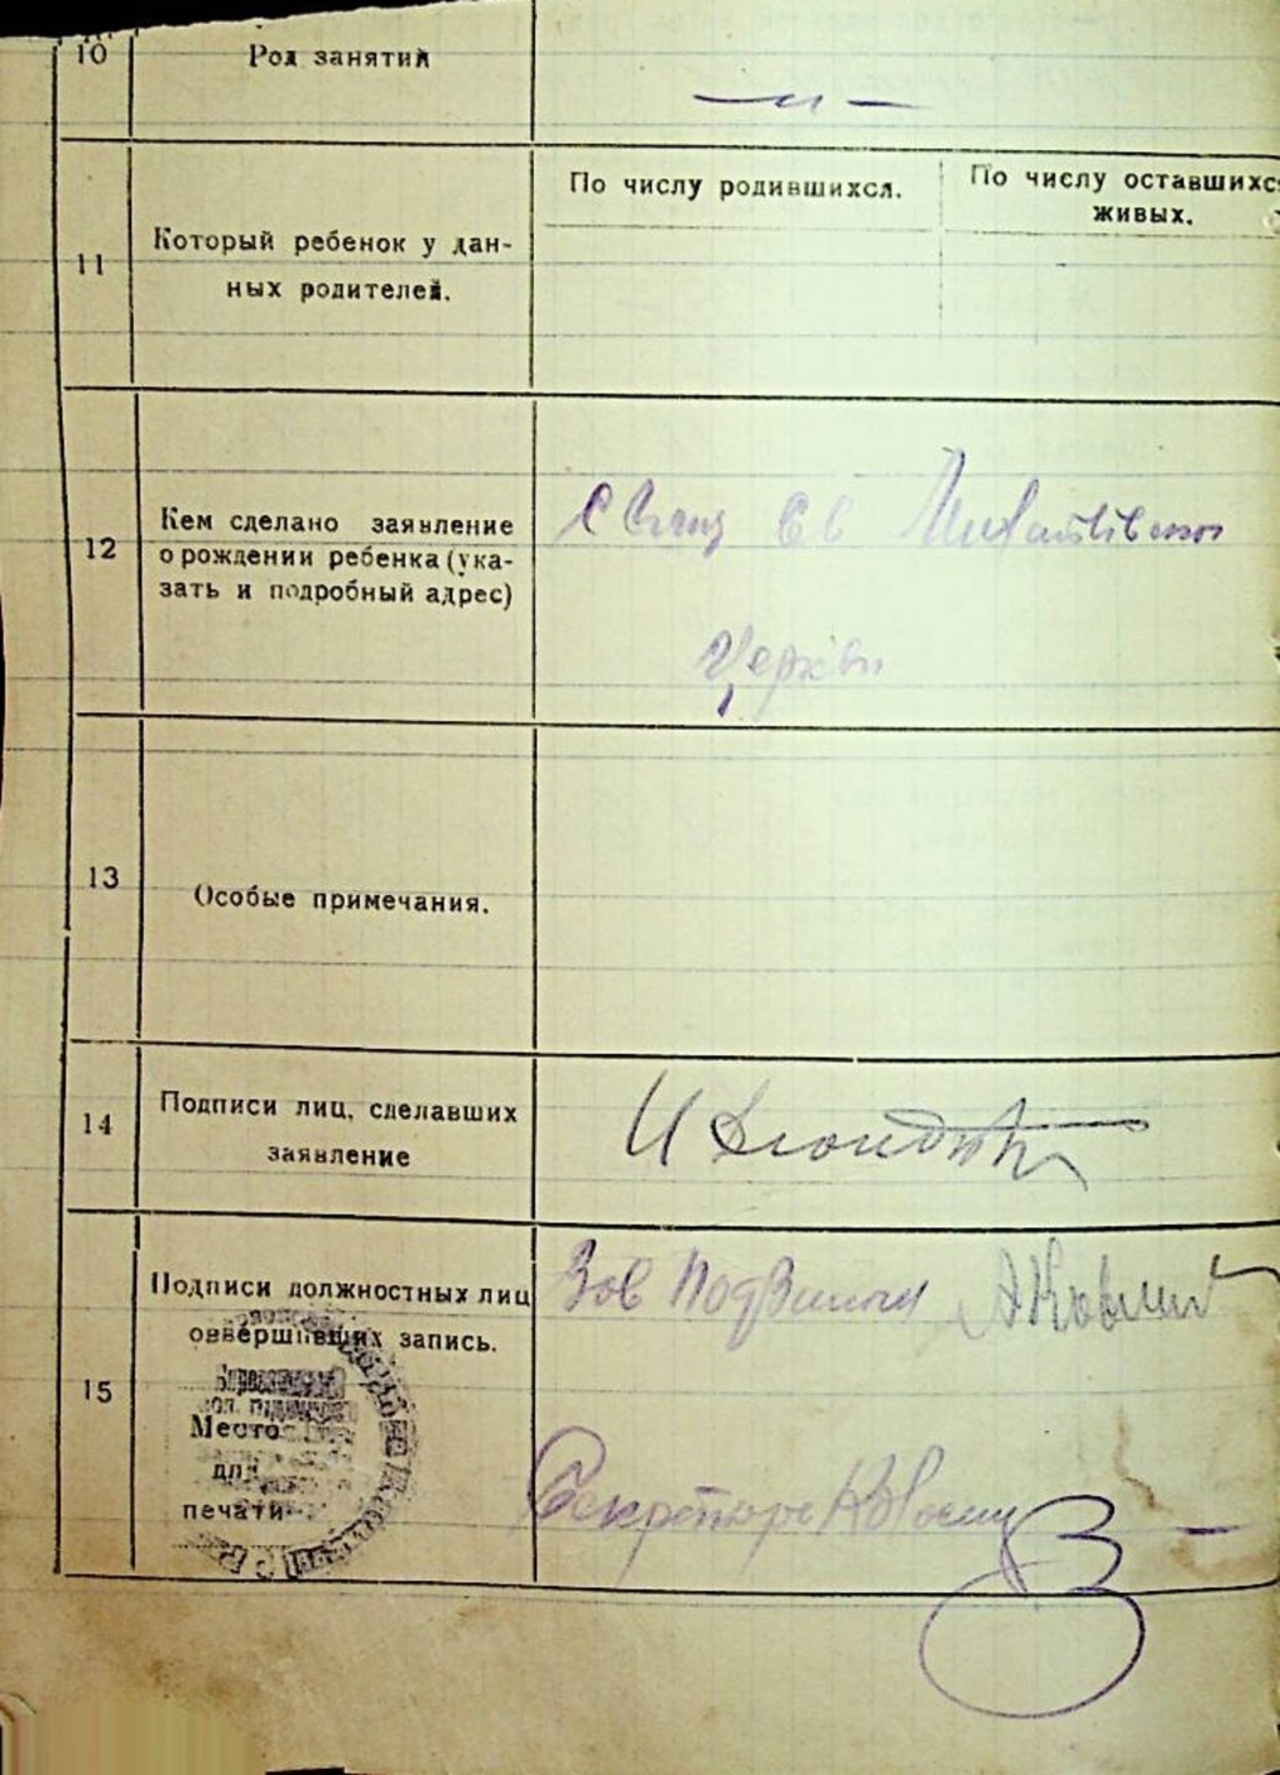 10
Род занятий
— „ —
По числу родившихся.
По числу оставшихс
живых.
11
Который ребенок у дан-
ных родителей.
12
Кем сделано заявление
о рождении ребенка (ука-
зать и подробный адрес)
Св Михайлівської
Церкви
13
Особые примечания.
14
Подписи лиц, сделавших
заявление
И
15
Подписи должностных лиц
совершивших запись.
Зав
Место
для
печати
Секретарь